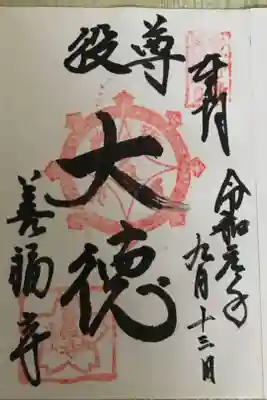 奉拝
令和元年
九月十三日
役尊
大徳
善福寺